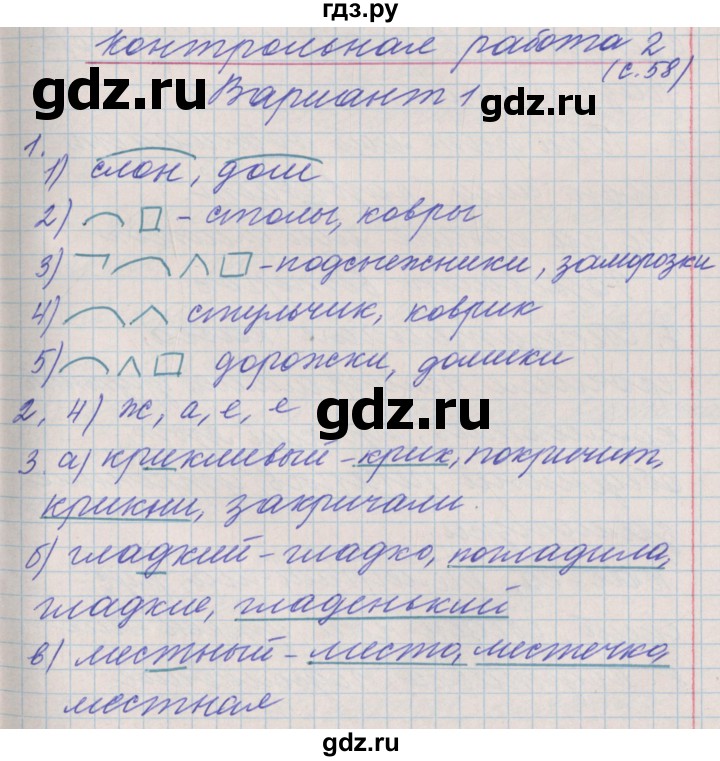 гдз.ру
Контрольная работа 2
(с.58)
gdz.ru Вариант 1 gdz.ru
1.
1) слон, дом
2) - столы, ковры
3) - подснежники, заморозки
4) стульчик, коврик
5) дорожки, домики
2, 4) ж, а, е, е gdz.ru
3. а) крикливый - крик, покричит,
крикни, закричали.
б) гладкий - гладко, погладила,
гладкие, гладенький
в) местный - место, местечко,
местная
gdz.ru